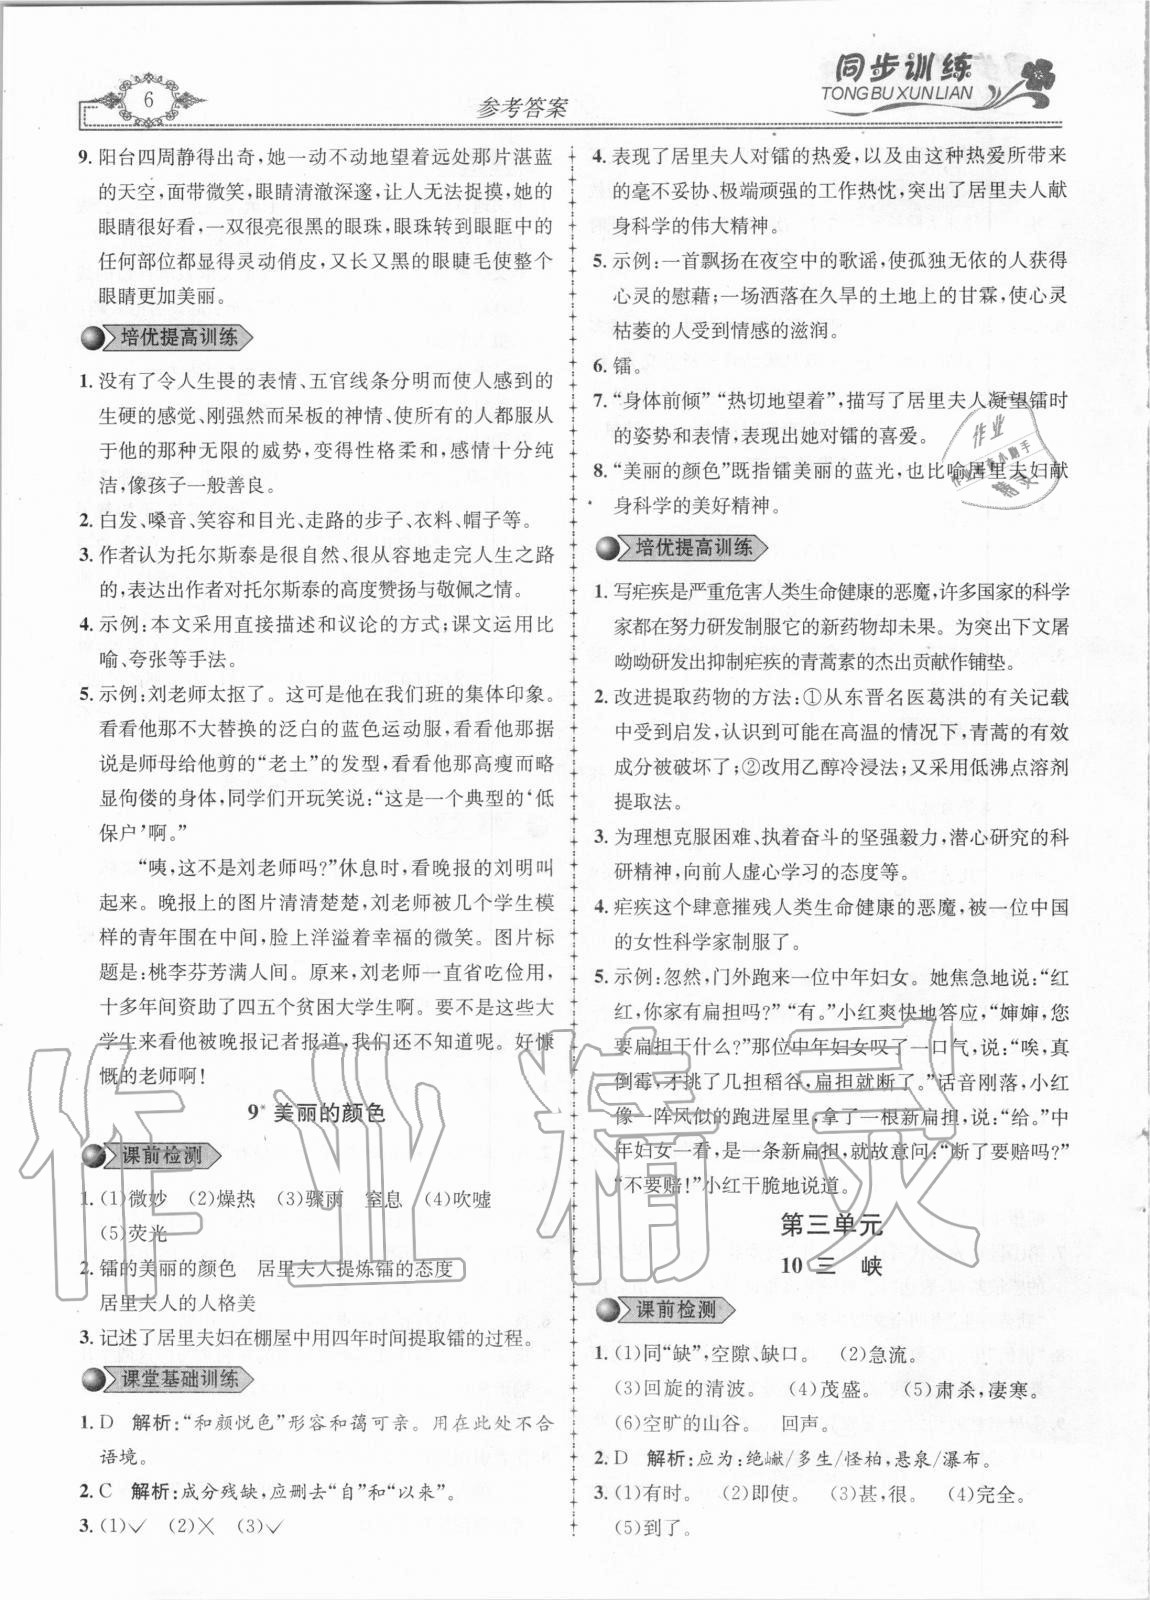 6
参考答案
同步训练
TONGBUXUNLIAN
9. 阳台四周静得出奇，她一动不动地望着远处那片湛蓝
的天空，面带微笑，眼睛清澈深邃，让人无法捉摸，她的
眼睛很好看，一双很亮很黑的眼珠，眼珠转到眼眶中的
任何部位都显得灵动俏皮，又长又黑的眼睫毛使整个
眼睛更加美丽。
培优提高训练
1. 没有了令人生畏的表情、五官线条分明而使人感到的
生硬的感觉、刚强然而呆板的神情、使所有的人都服从
于他的那种无限的威势，变得性格柔和，感情十分纯
洁，像孩子一般善良。
2. 白发、嗓音、笑容和目光、走路的步子、衣料、帽子等。
3. 作者认为托尔斯泰是很自然、很从容地走完人生之路
的，表达出作者对托尔斯泰的高度赞扬与敬佩之情。
4. 示例：本文采用直接描述和议论的方式；课文运用比
喻、夸张等手法。
5. 示例：刘老师太抠了。这可是他在我们班的集体印象。
看看他那不大替换的泛白的蓝色运动服，看看他那据
说是师母给他剪的“老土”的发型，看看他那高瘦而略
显佝偻的身体，同学们开玩笑说：“这是一个典型的‘低
保户’啊。”
“咦，这不是刘老师吗？”休息时，看晚报的刘明叫
起来。晚报上的图片清清楚楚，刘老师被几个学生模
样的青年围在中间，脸上洋溢着幸福的微笑。图片标
题是：桃李芬芳满人间。原来，刘老师一直省吃俭用，
十多年间资助了四五个贫困大学生啊。要不是这些大
学生来看他被晚报记者报道，我们还不知道呢。好慷
慨的老师啊！
9* 美丽的颜色
课前检测
1. (1)微妙 (2)燥热 (3)骤雨 窒息 (4)吹嘘
(5)荧光
2. 镭的美丽的颜色 居里夫人提炼镭的态度
居里夫人的人格美
3. 记述了居里夫妇在棚屋中用四年时间提取镭的过程。
课堂基础训练
1. D 解析：“和颜悦色”形容和蔼可亲。用在此处不合
语境。
2. C 解析：成分残缺，应删去“自”和“以来”。
3. (1)✓ (2)✗ (3)✓
4. 表现了居里夫人对镭的热爱，以及由这种热爱所带来
的毫不妥协、极端顽强的工作热忱，突出了居里夫人献
身科学的伟大精神。
5. 示例：一首飘扬在夜空中的歌谣，使孤独无依的人获得
心灵的慰藉；一场洒落在久旱的土地上的甘霖，使心灵
枯萎的人受到情感的滋润。
6. 镭。
7. “身体前倾”“热切地望着”，描写了居里夫人凝望镭时
的姿势和表情，表现出她对镭的喜爱。
8. “美丽的颜色”既指镭美丽的蓝光，也比喻居里夫妇献
身科学的美好精神。
培优提高训练
1. 写疟疾是严重危害人类生命健康的恶魔，许多国家的科学
家都在努力研发制服它的新药物却未果。为突出下文屠
呦呦研发出抑制疟疾的青蒿素的杰出贡献作铺垫。
2. 改进提取药物的方法：①从东晋名医葛洪的有关记载
中受到启发，认识到可能在高温的情况下，青蒿的有效
成分被破坏了；②改用乙醇冷浸法；又采用低沸点溶剂
提取法。
3. 为理想克服困难、执着奋斗的坚强毅力，潜心研究的科
研精神，向前人虚心学习的态度等。
4. 疟疾这个肆意摧残人类生命健康的恶魔，被一位中国
的女性科学家制服了。
5. 示例：忽然，门外跑来一位中年妇女。她焦急地说：“红
红，你家有扁担吗？”“有。”小红爽快地答应，“婶婶，您
要扁担干什么？”那位中年妇女叹了一口气，说：“唉，真
倒霉，才挑了几担稻谷，扁担就断了。”话音刚落，小红
像一阵风似的跑进屋里，拿了一根新扁担，说：“给。”中
年妇女一看，是一条新扁担，就故意问：“断了要赔吗？”
“不要赔！”小红干脆地说道。
第三单元
10 三 峡
课前检测
1. (1)同“缺”，空隙、缺口。 (2)急流。
(3)回旋的清波。 (4)茂盛。 (5)肃杀，凄寒。
(6)空旷的山谷。 回声。
2. D 解析：应为：绝巘/多生/怪柏，悬泉/瀑布。
3. (1)有时。 (2)即使。 (3)甚，很。 (4)完全。
(5)到了。
作业精灵